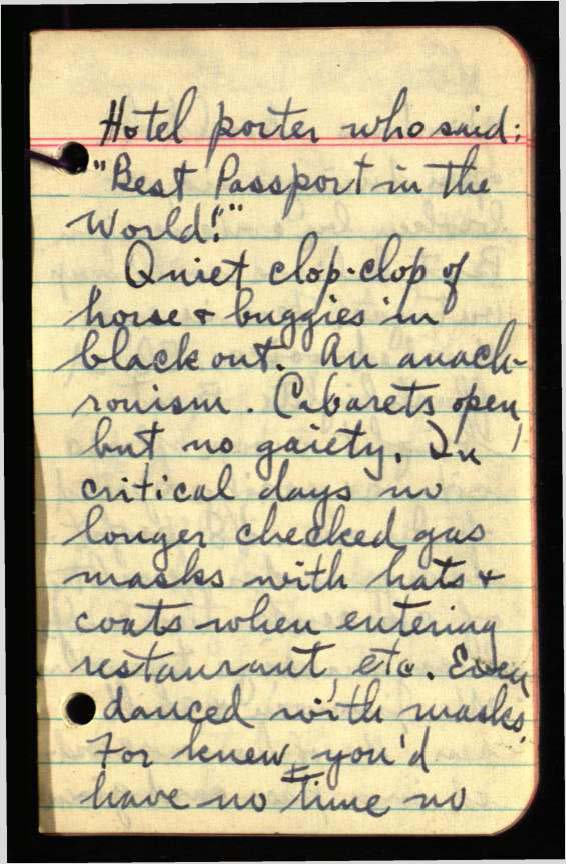 Hotel porter who said:
"Best Passport in the
World!"
Quiet clop-clop of
horse & buggies in
black out. An anach-
ronism. Cabarets open,
but no gaiety. In
critical days no
longer checked gas
masks with hats &
coats when entering
restaurant, etc. Even
danced with masks.
For knew you'd
have no time no